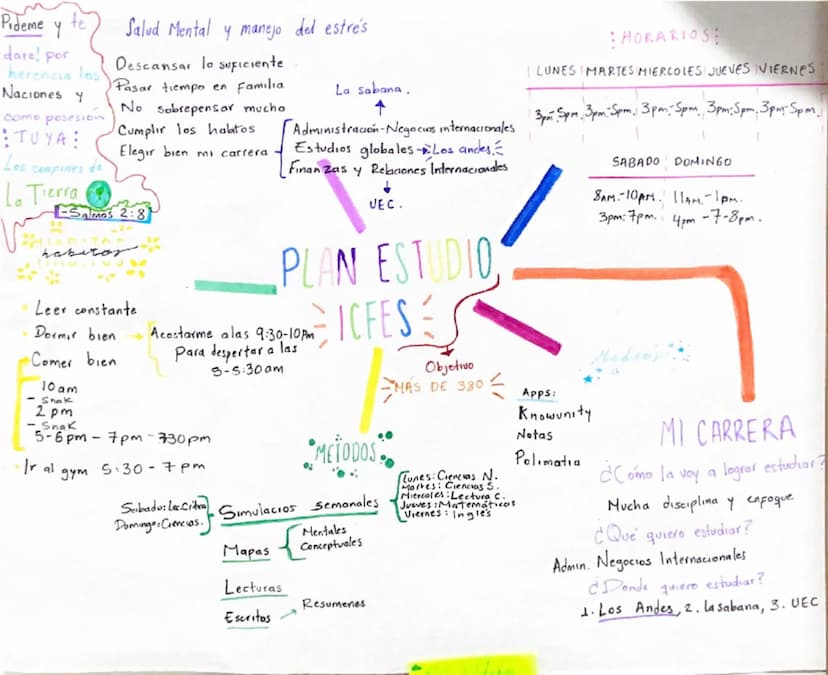 Pídeme y te
daré! por
herencia las
Naciones y
como posesión
TUYA:
Los confines de
La Tierra
-Salmos 2:8
Salud Mental y manejo del estrés
Descansar lo suficiente
Pasar tiempo en familia
No sobrepensar mucho
Cumplir los habitos
Elegir bien mi carrera
La sabana.
Administración-Negocios internacionales
Estudios globales → Los andes.
Finanzas y Relaciones Internacionales
UEC.
:HORARIOS:
LUNES MARTES MIERCOLES JUEVES VIERNES
3pm-5pm. 3pm-5pm. 3pm-5pm. 3pm-5pm. 3pm-5pm.
SABADO DOMINGO
8AM.-10AM. 11AM-1pm.
3pm:7pm. 4pm-7-8pm.
PLAN ESTUDIO
ICFES
Objetivo
MÁS DE 380
HABITOS
habitos
Leer constante
Dormir bien → Acostarme a las 9:30-10pm
Para despertar a las
5-5:30am
Comer bien
10am
- snak
2 pm
- snak
5-6pm - 7pm - 730pm
Ir al gym 5:30 - 7pm
METODOS
Simulacros semanales
Sabado: Lec.Critica
Domingo: Ciencias.
Lunes: Ciencias N.
Martes: Ciencias S.
Miercoles: Lectura C.
Jueves: Matematicas
Viernes: Ingles
Mapas
Mentales
Conceptuales
Lecturas
Escritos → Resumenes
Medios
Apps:
Knowunity
Notas
Polimatia
MI CARRERA
¿Cómo la voy a lograr estudiar?
Mucha disciplina y enfoque
¿Qué quiero estudiar?
Admin. Negocios Internacionales
¿Donde quiero estudiar?
1. Los Andes, 2. la sabana, 3. UEC